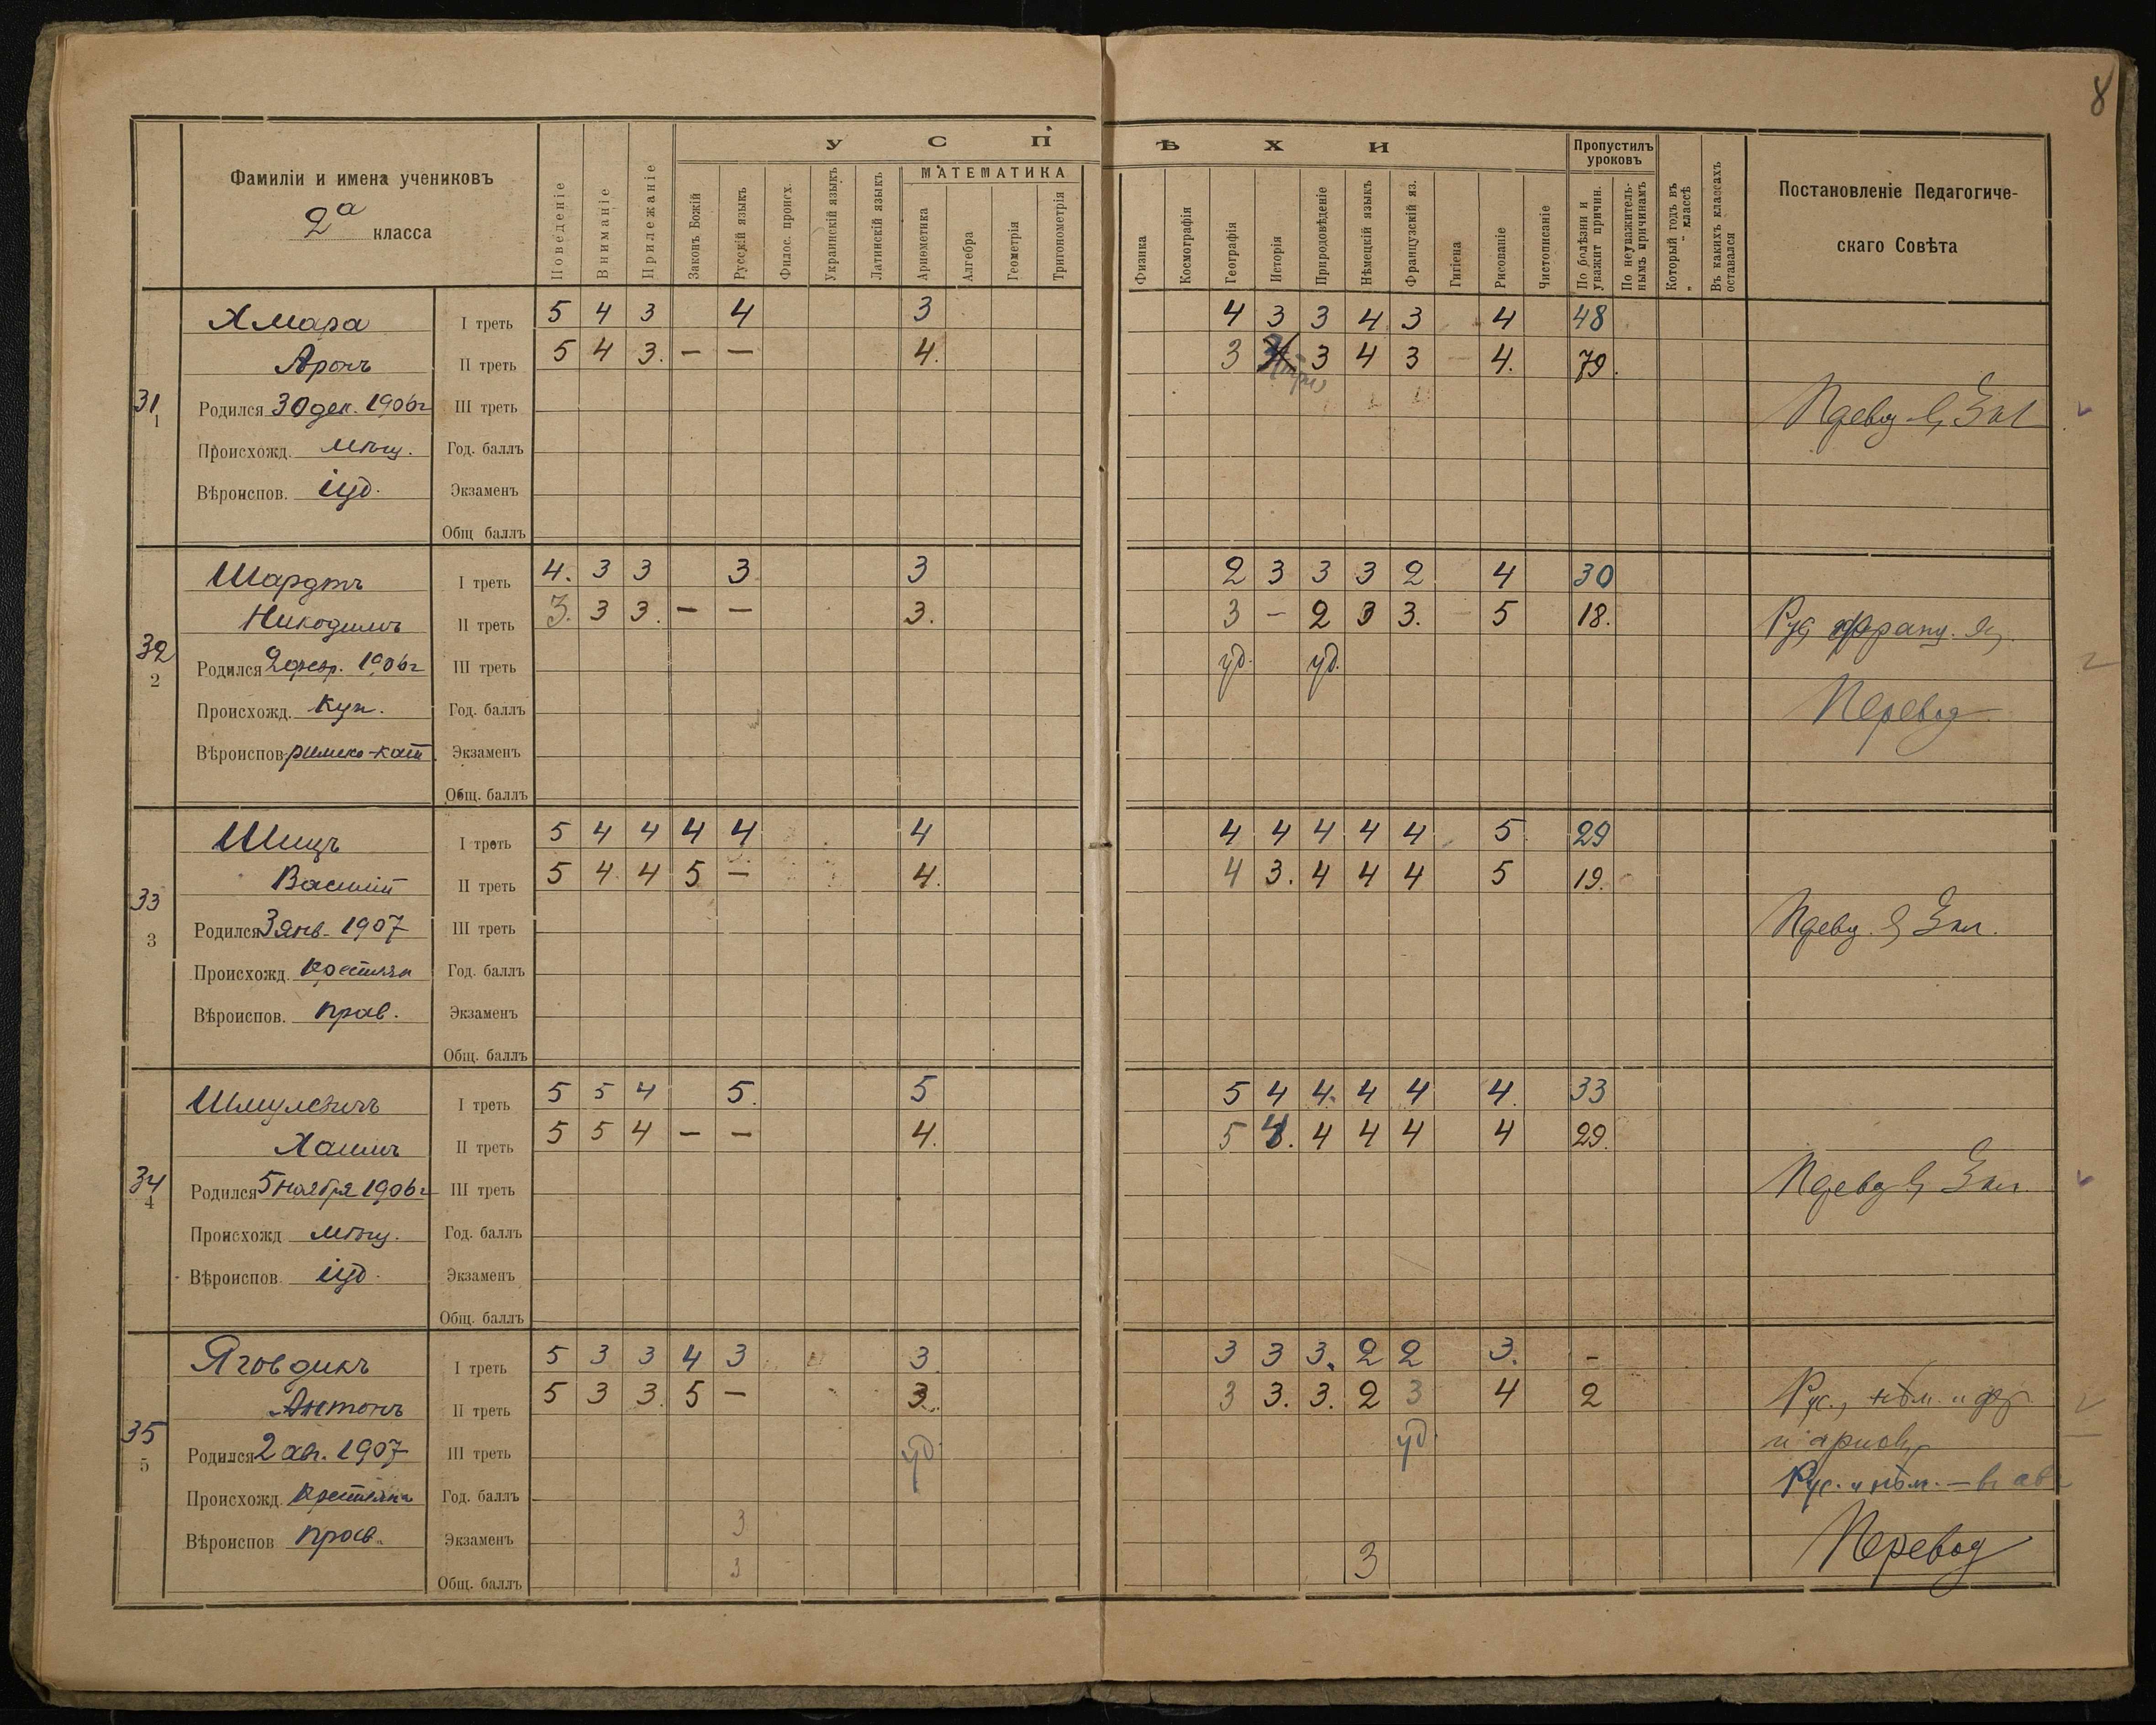 8
Фамиліи и имена учениковъ
2а класса
Поведеніе
Вниманіе
Прилежаніе
УСПѢХИ
Законъ Божій
Русскій языкъ
Филос. происх.
Украинскій языкъ
Латинскій языкъ
МАТЕМАТИКА
Ариѳметика
Алгебра
Геометрія
Тригонометрія
Физика
Космографія
Географія
Исторія
Природовѣденіе
Нѣмецкій языкъ
Французскій яз.
Гигіена
Рисованіе
Чистописаніе
Пропустилъ уроковъ
По болѣзни и уважит причин.
По неуважитель- нымъ причинамъ
Который годъ въ „ “ классѣ
Въ какихъ классахъ оставался
Постановленіе Педагогиче-
скаго Совѣта
31
1
Хмара
Аронъ
Родился 30 дек. 1906 г
Происхожд. мѣщ.
Вѣроиспов. іуд.
I треть 5 4 3 4 3 4 3 3 4 3 4 48
II треть 5 4 3. — — 4. 3 3 4 3 — 4. 79.
III треть
Год. баллъ
Экзаменъ
Общ баллъ
32
2
Шардтъ
Никодимъ
Родился 2 февр. 1906 г
Происхожд. Куп.
Вѣроиспов. римско-кат.
I треть 4. 3 3 3 3 2 3 3 3 2 4 30
II треть 3. 3 3. — — 3. 3 — 2 3 3. — 5 18.
III треть уд. уд.
Год. баллъ
Экзаменъ
Общ. баллъ
франц. яз.
Перевод
33
3
Шицъ
Василій
Родился 3 янв. 1907
Происхожд. крестьян
Вѣроиспов. прав.
I треть 5 4 4 4 4 4 4 4 4 4 4 5 29
II треть 5 4 4 5 — 4. 4 3. 4 4 4 5 19.
III треть
Год. баллъ
Экзаменъ
Общ. баллъ
34
4
Шмулевичъ
Хаимъ
Родился 5 ноября 1906 г
Происхожд мѣщ.
Вѣроиспов. іуд.
I треть 5 5 4 5. 5 5 4 4. 4 4 4. 33
II треть 5 5 4 — — 4. 5 4. 4 4 4 4 29.
III треть
Год. баллъ
Экзаменъ
Общ. баллъ
35
5
Яговдикъ
Антонъ
Родился 2 авг. 1907
Происхожд. крестьян
Вѣроиспов прав.
I треть 5 3 3 4 3 3. 3 3 3. 2 2 3. –
II треть 5 3 3. 5 — 3. 3 3. 3. 2 3 4 2
III треть уд. уд.
Год. баллъ
Экзаменъ 3
Общ. баллъ 3 3
Рус., нѣм. и фр.
и ариѳ.
Рус. и нѣм. — в ав
Перевод